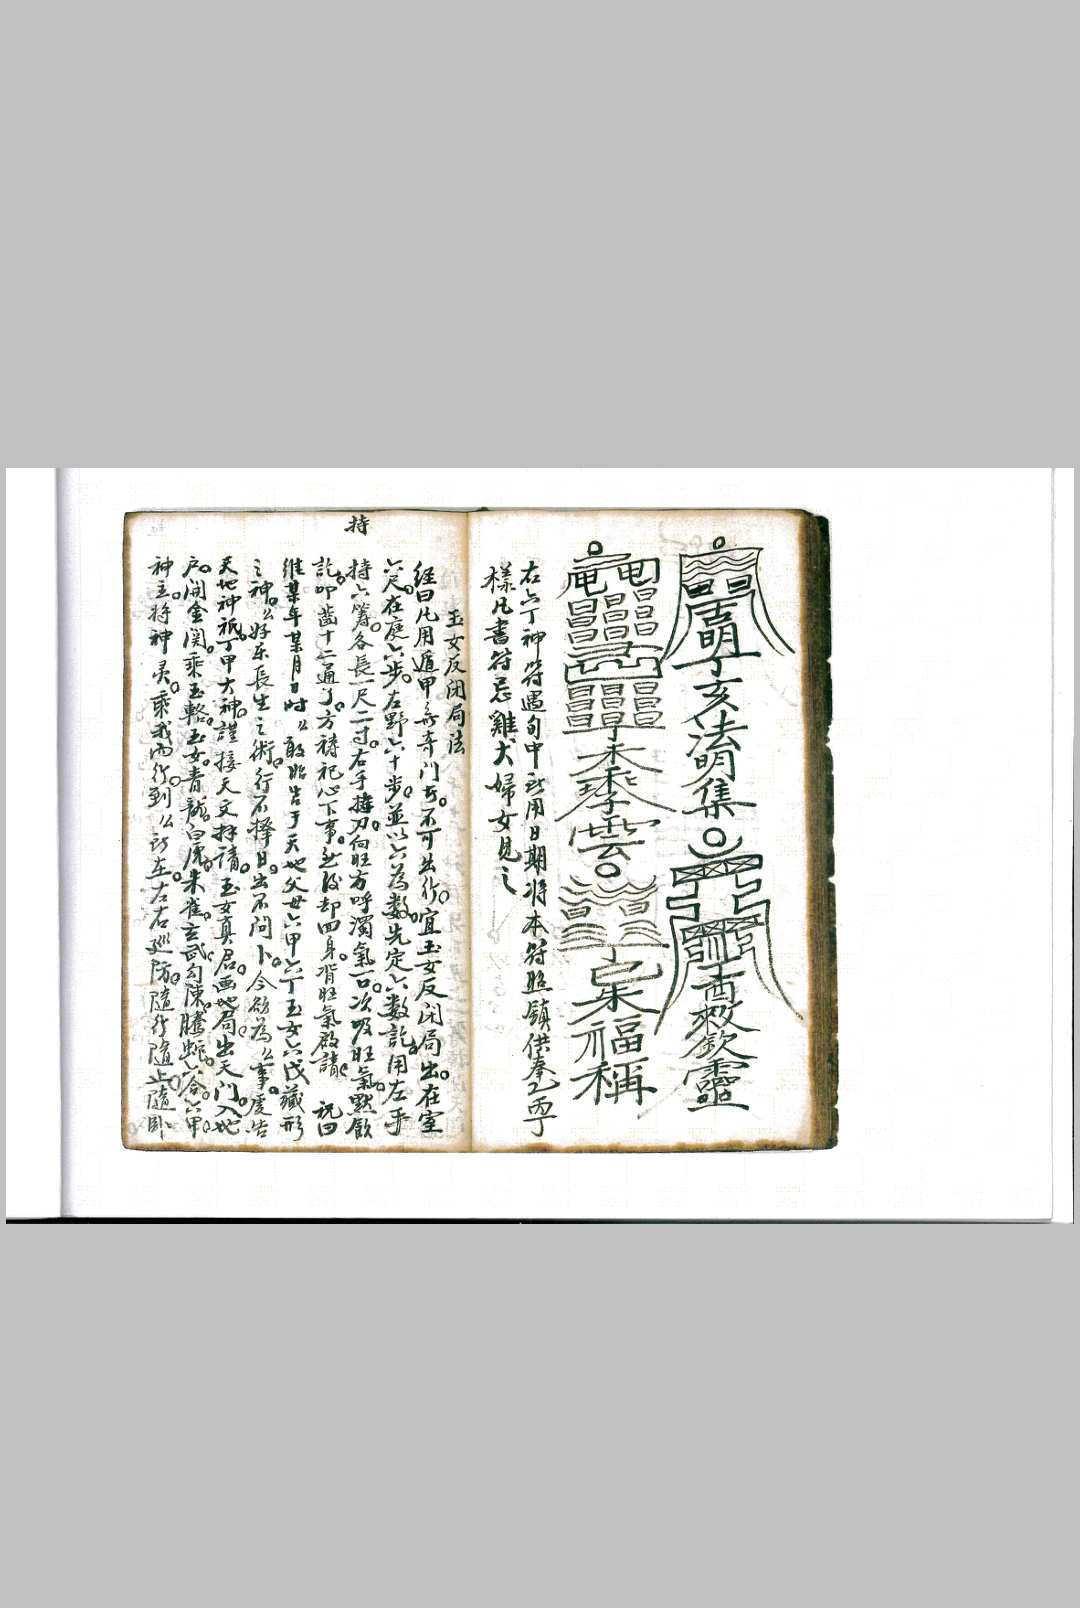 丁亥法明集
丁酉敕欽靈
福稱
右六丁神符遇旬中所用日期將本符照鎮供奉乙面丁
樣凡書符忌雞犬婦女見之
玉女反闭局法
経曰凡用遁甲奇门方不可出行宜玉女反闭局出在室
六尺在庭六步在野六十步並以六為数先定六数訖用左手
持
持六籌各長一尺二寸右手持刀向旺方呼濁氣一口次吸旺氣默飲
訖叩齒十二通了方禱祀心下事然後却回身背旺氣啟請 祝曰
維某年某月日时厶敢昭告于天地父母六甲六丁玉女六戊藏形
之神厶好乐長生之術行不擇日出不问卜今欲為厶事虔告
天地神祇丁甲大神謹按天文拜請玉女真君画地局出天门入地
户闭金関乘玉輅玉女青龍白虎朱雀玄武勾陳騰蛇六合六甲
神主将神灵乘我而行到厶所在左右巡防隨行隨止隨卧